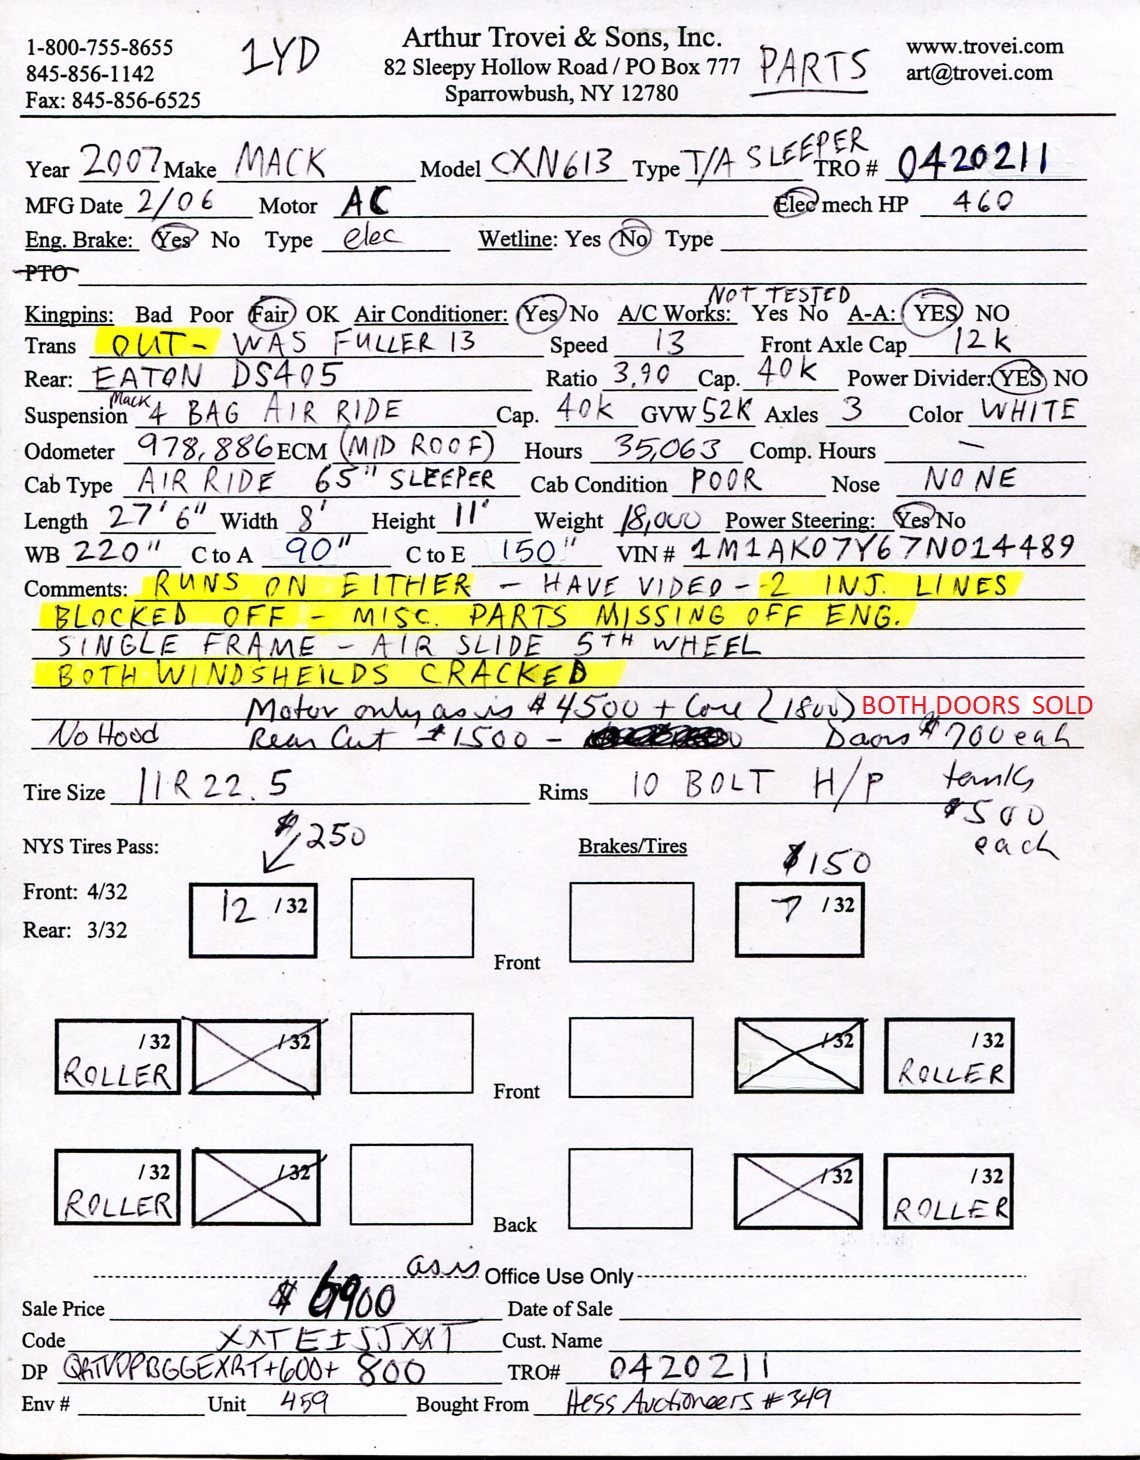 1-800-755-8655
845-856-1142
Fax: 845-856-6525
1YD
Arthur Trovei & Sons, Inc.
82 Sleepy Hollow Road / PO Box 777
Sparrowbush, NY 12780
PARTS
www.trovei.com
art@trovei.com
Year 2007 Make MACK Model CXN613 Type T/A SLEEPER TRO # 0420211
MFG Date 2/06 Motor AC Elec mech HP 460
Eng. Brake: Yes No Type elec Wetline: Yes No Type
PTO
NOT TESTED
Kingpins: Bad Poor Fair OK Air Conditioner: Yes No A/C Works: Yes No A-A: YES NO
Trans OUT - WAS FULLER 13 Speed 13 Front Axle Cap 12K
Rear: EATON DS405 Ratio 3.90 Cap. 40K Power Divider: YES NO
Suspension Mack 4 BAG AIR RIDE Cap. 40K GVW 52K Axles 3 Color WHITE
Odometer 978,886 ECM (MID ROOF) Hours 35,063 Comp. Hours —
Cab Type AIR RIDE 65" SLEEPER Cab Condition POOR Nose NONE
Length 27'6" Width 8' Height 11' Weight 18,000 Power Steering: Yes No
WB 220" C to A 90" C to E 150" VIN # 1M1AK07Y67N014489
Comments: RUNS ON EITHER - HAVE VIDEO - 2 INJ. LINES
BLOCKED OFF - MISC. PARTS MISSING OFF ENG.
SINGLE FRAME - AIR SLIDE 5TH WHEEL
BOTH WINDSHEILDS CRACKED
Motor only as is $4500 + Core (1800) BOTH DOORS SOLD
No Hood Rear Cut $1500 - Doors $700 each
Tire Size 11R22.5 Rims 10 BOLT H/P tanks
$500
each
NYS Tires Pass: $250 Brakes/Tires $150
Front: 4/32 12 /32 7 /32
Rear: 3/32
Front
/32 /32 /32 /32
ROLLER ROLLER
Front
/32 /32 /32 /32
ROLLER ROLLER
Back
as is Office Use Only
Sale Price $6900 Date of Sale
Code XXTEISJXXT Cust. Name
DP +600+ 800 TRO# 0420211
Env # Unit 459 Bought From Hess Auctioneers #349